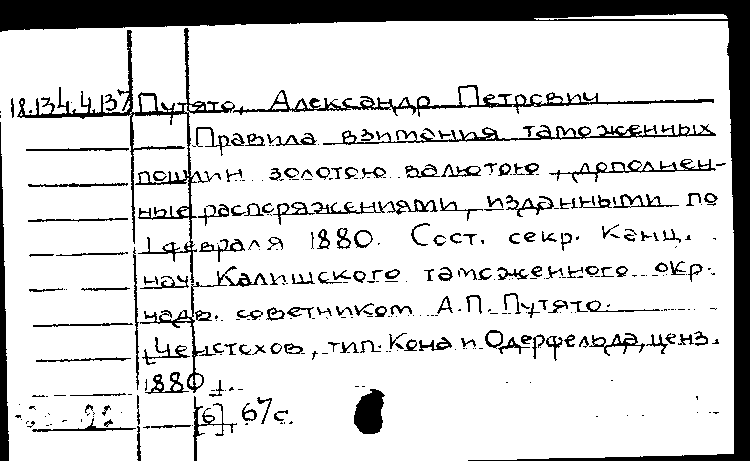 18.134.4.137 Путято, Александр Петрович
Правила взимания таможенных
пошлин золотою валютою, дополнен-
ные распоряжениями, изданными по
1 февраля 1880. Сост. секр. канц.
нач. Калишского таможенного окр.
надв. советником А.П. Путято.
Ченстохов, тип. Кона и Одерфельда, ценз.
1880.
[6], 67 с.